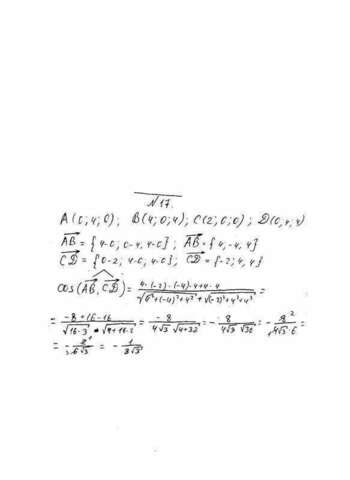 N17.
A(0; 4; 0); B(4; 0; 4); C(2; 0; 0); D(0; 4; 4)
AB = {4-0; 0-4, 4-0}; AB = {4, -4, 4}
CD = {0-2; 4-0, 4-0}; CD = {-2; 4, 4}
cos(AB, CD) = 4·(-2)·(-4)·4+4·4 / √6²+(-4)²+4² + √(-2)²+4²+4² =
= -8+16-16 / √16·3 · √4+16·2 = -8 / 4√3 √4+32 = - 8 / 4√3 √36 = - 8 2 / 4√3·6 =
= - 8 1 / 3·6√3 = - 1 / 3√3